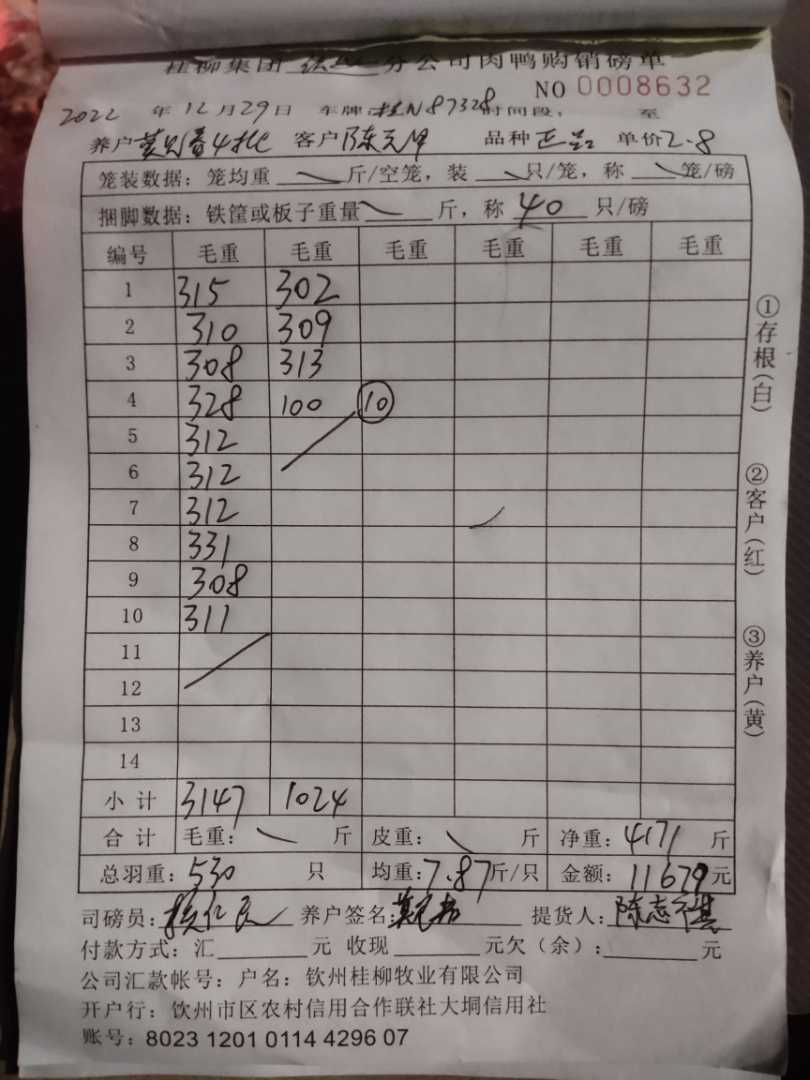 桂柳集团 分公司肉鸭购销磅单
NO 0008632
2022 年 12 月 29 日 车牌:桂N87328 时间段: 至
养户 4批 客户 陈 品种 正品 单价 2.8
笼装数据: 笼均重 斤/空笼, 装 只/笼, 称 笼/磅
捆脚数据: 铁筐或板子重量 斤, 称 40 只/磅
编号 毛重 毛重 毛重 毛重 毛重 毛重
1 315 302
2 310 309
3 308 313
4 328 100 10
5 312
6 312
7 312
8 331
9 308
10 311
11
12
13
14
小计 3147 1024
合计 毛重: 斤 皮重: 斤 净重: 4171 斤
总羽重: 530 只 均重: 7.87 斤/只 金额: 11679 元
司磅员: 养户签名: 提货人: 陈志
付款方式: 汇 元 收现 元欠(余): 元
公司汇款帐号: 户名: 钦州桂柳牧业有限公司
开户行: 钦州市区农村信用合作联社大垌信用社
账号: 8023 1201 0114 4296 07
①存根(白)
②客户(红)
③养户(黄)